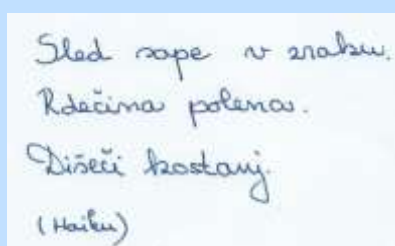 Sled sape v zraku.
Rdečina polena.
Dišeči kostanj.
(Haiku)